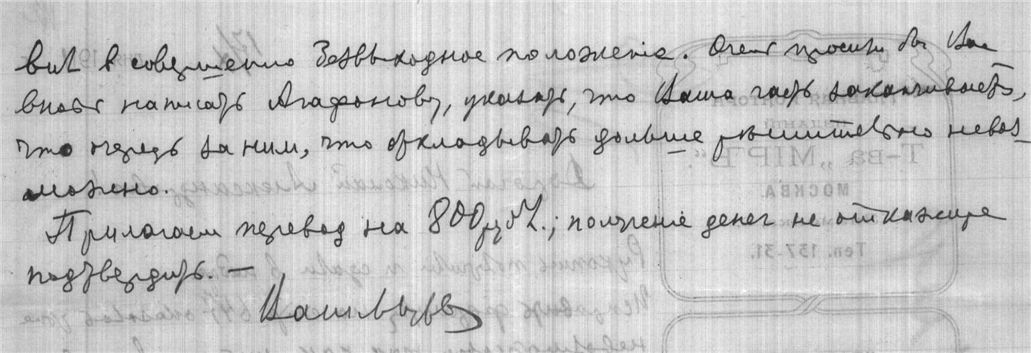 вил в совершенно безвыходное положение. Очень просили бы Вас
вновь написать Агафонову, указать, что Ваша часть заканчивается,
что очередь за ним, что откладывать дольше решительно невоз-
можно.
Прилагаем перевод на 800 рубл.; получение денег не откажите
подтвердить. —